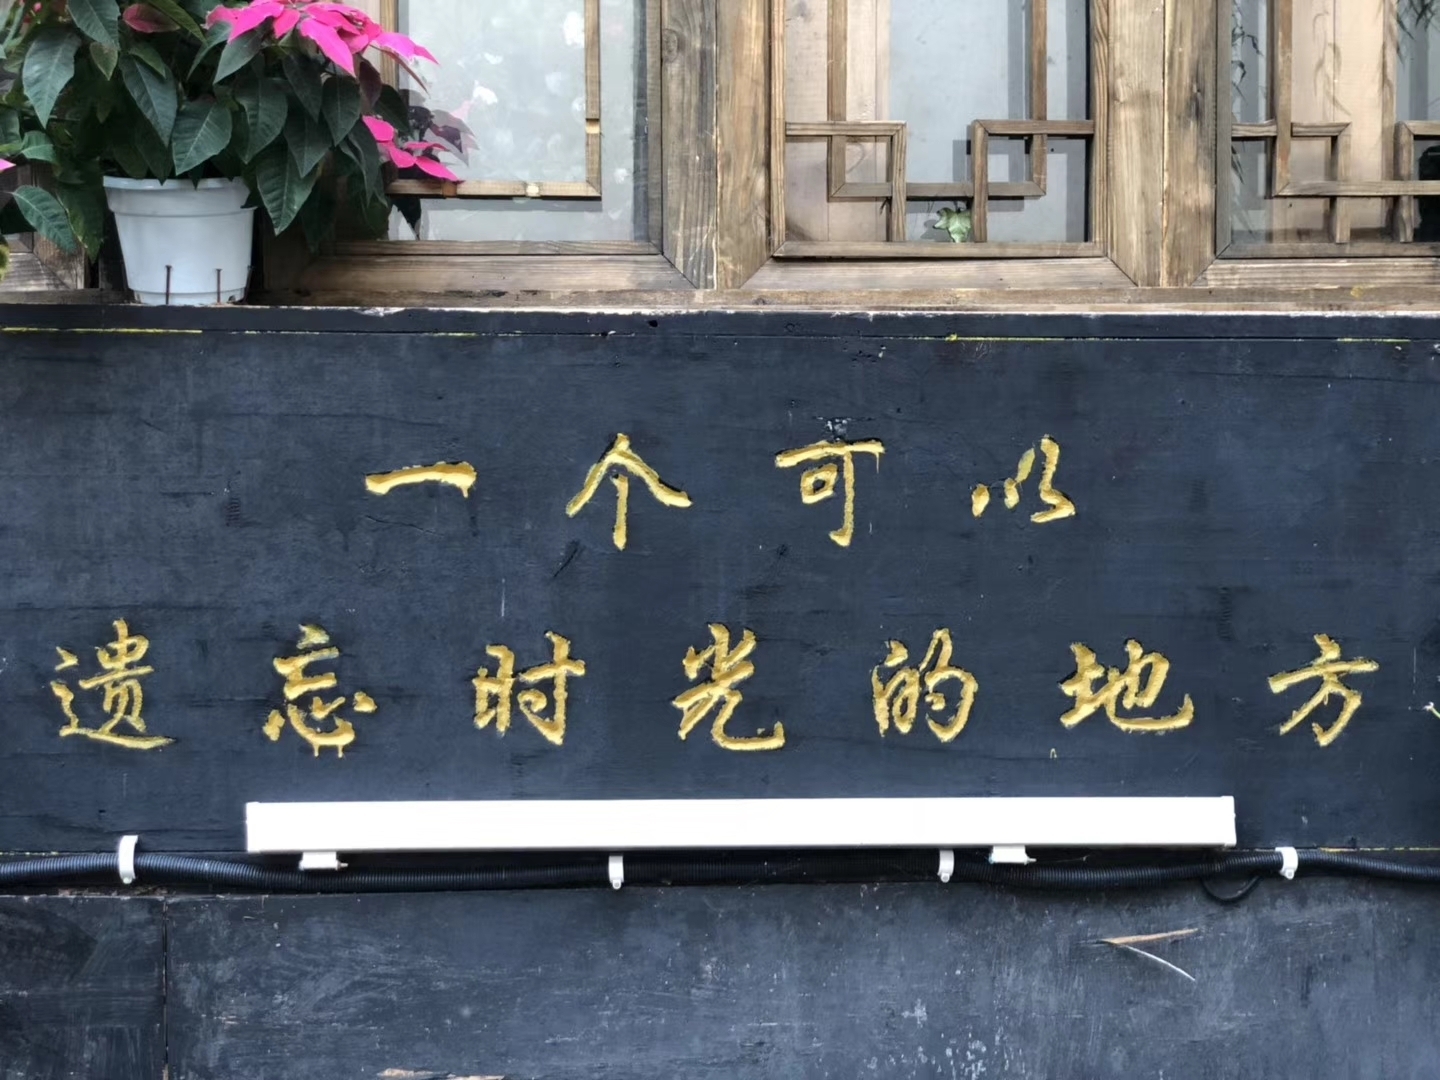 一个可以
遗忘时光的地方